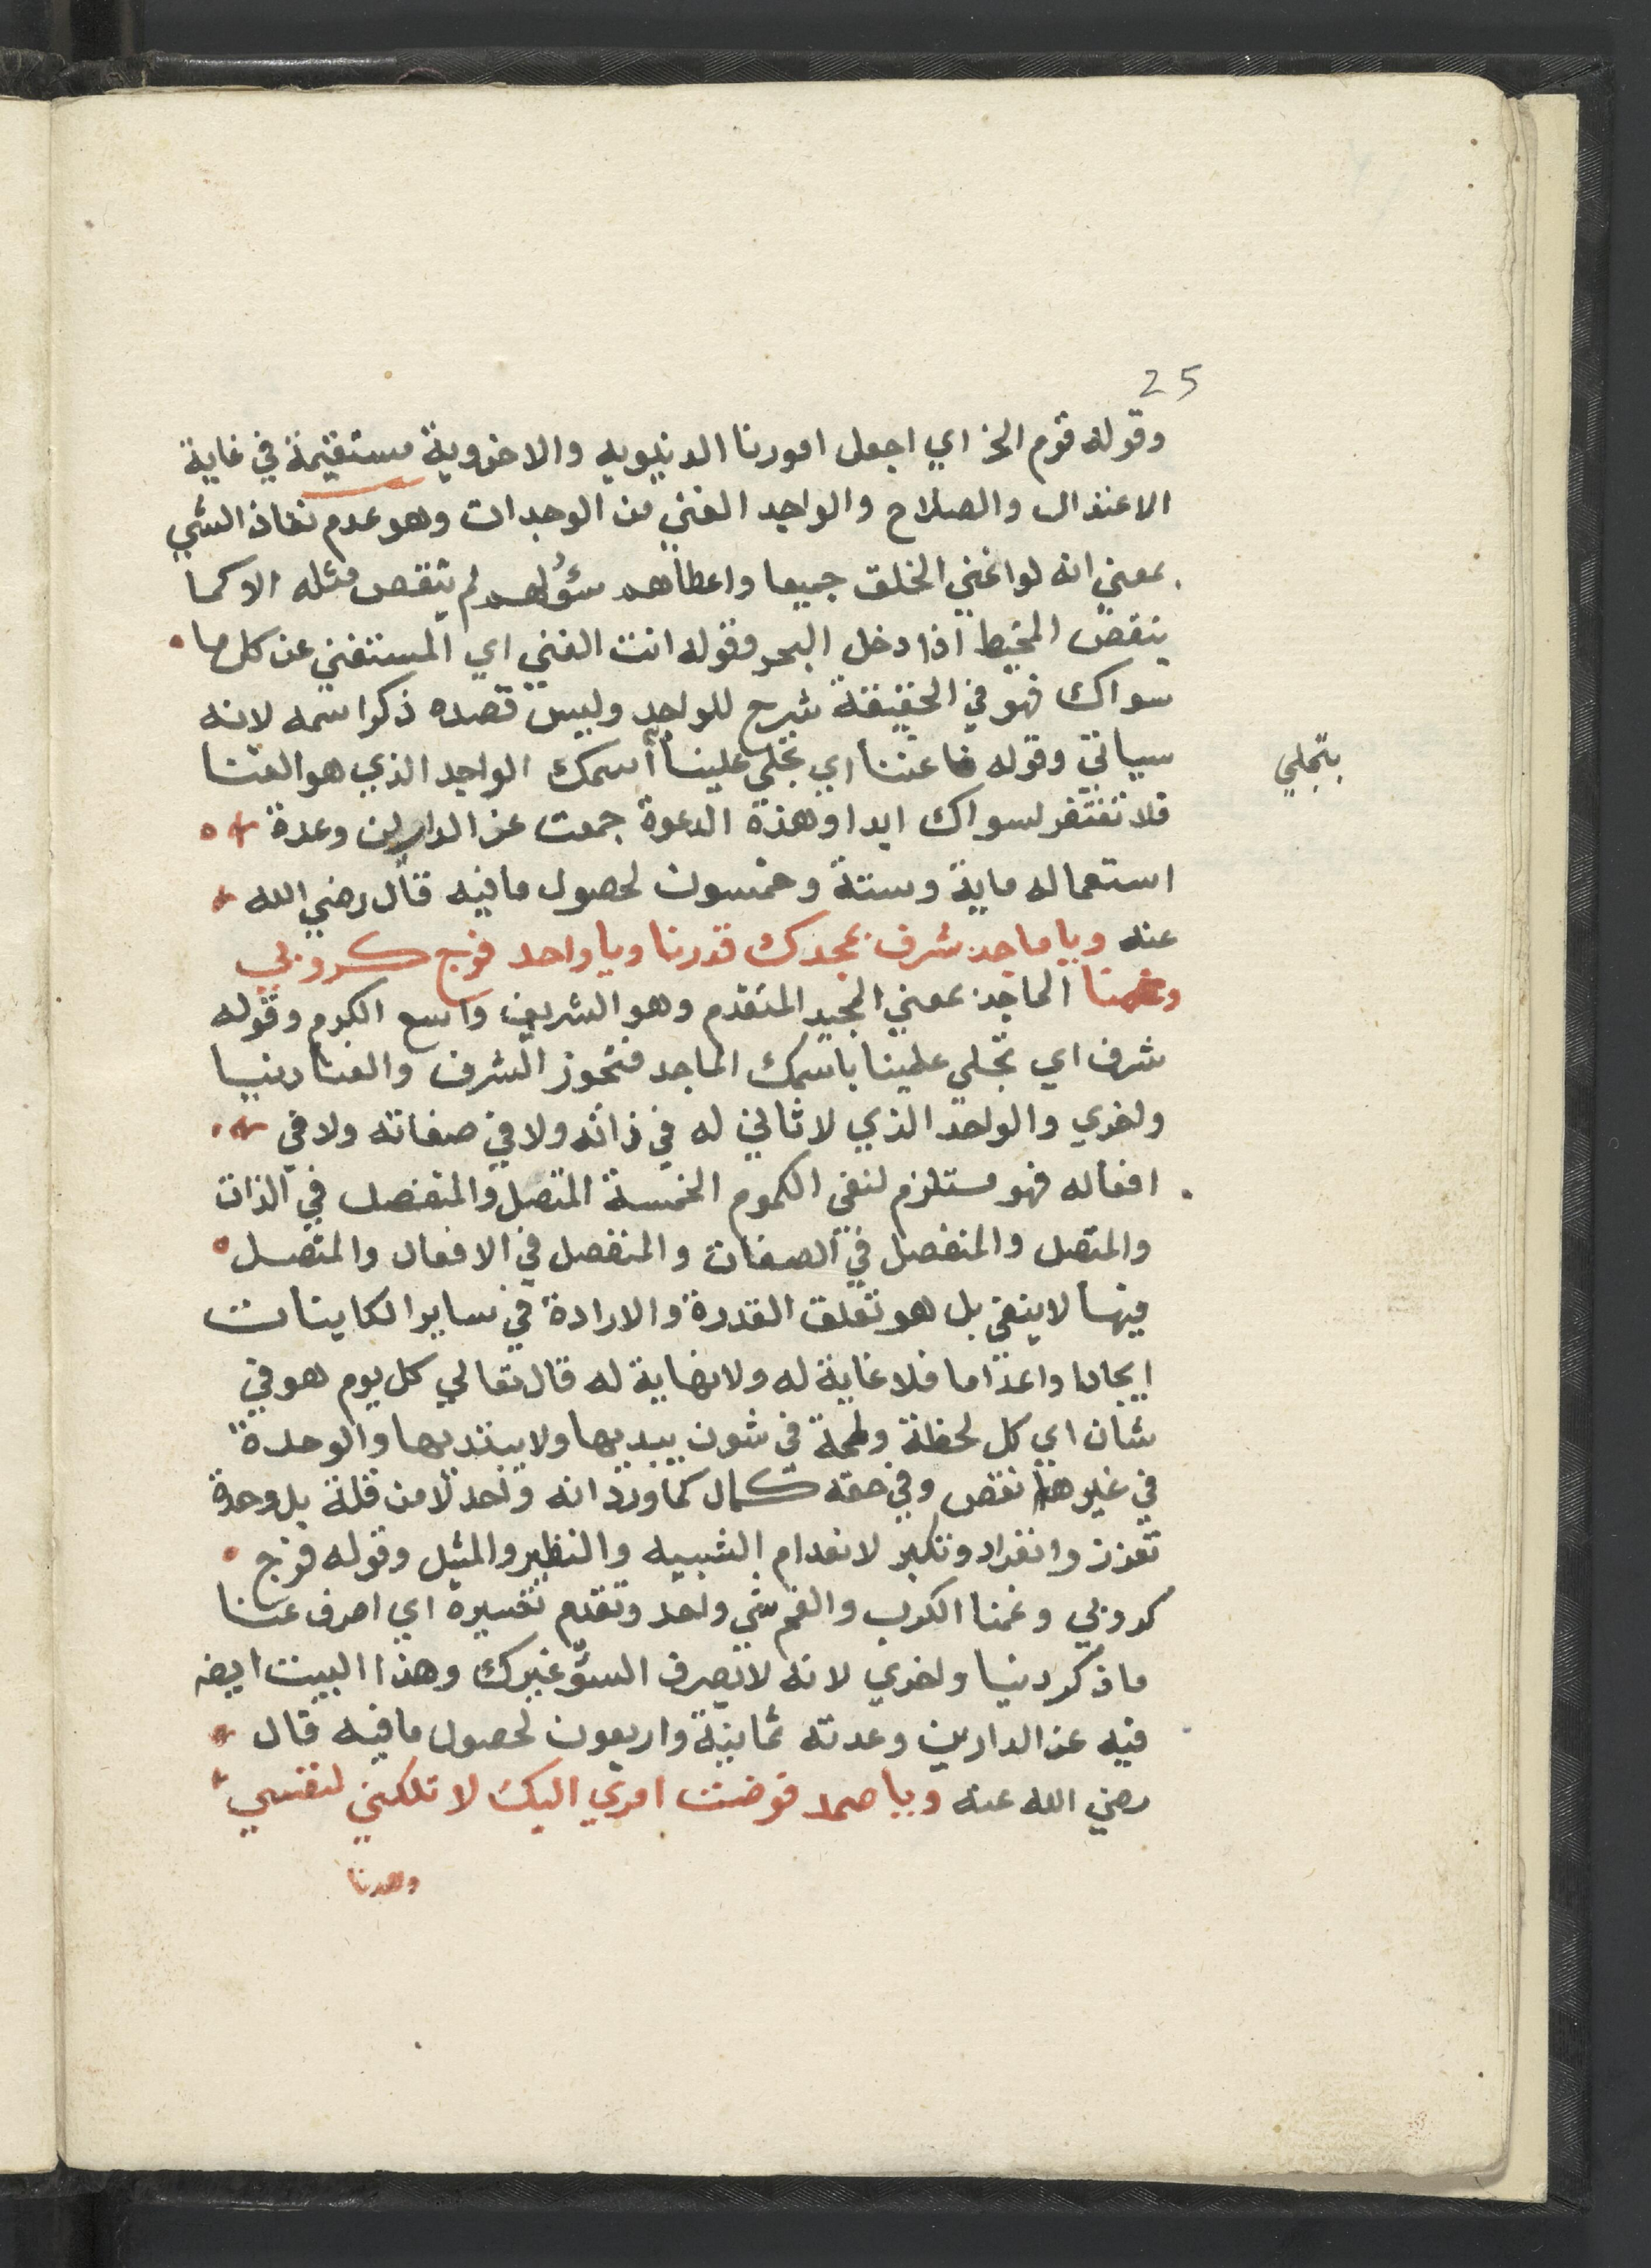 25
وقوله قوم الخ اي اجعل امورنا الدنيويه والاخروية مستقيمة في غاية
الاعتدال والصلاح والواجد الغني من الوجدات وهو عدم نفاذ الشي
بمعني انه لو اغني الخلق جميعا واعطاهم سؤلهم لم ينقص مثله الا كما
ينقص المخيط اذا دخل البحر وقوله انت الغني اي المستغني عن كل ما
سواك فهو في الحقيقة شرح للواجد وليس قصده ذكر اسمه لانه
سياتي وقوله فاغننا اي تجلي علينا أسمك الواجد الذي هو الغنا
بتجلي
فلا نفتقر لسواك ابدا وهذة الدعوة جمعت عز الدارين وعدة
استعماله ماية وستة وخمسون لحصول ما فيه قال رضي الله
عنه ويا ماجد شرف بمجدك قدرنا ويا واحد فرج كروبي
وغمنا الماجد بمعني المجيد المتقدم وهو الشريف واسع الكرم وقوله
شرف اي تجلي علينا باسمك الماجد فنحوز الشرف والغنا دنيا
واخري والواحد الذي لا ثاني له في ذاته ولا في صفاته ولا في
افعاله فهو مستلزم لنفي الكموم الخمسة المتصل والمنفصل في الذات
والمتصل والمنفصل في الصفات والمنفصل في الافعال والمتصل
فيها لا ينفي بل هو تعلق القدرة والارادة في ساير الكاينات
ايجادا واعداما فلا غاية له ولا نهاية له قال تعالي كل يوم هو في
شان اي كل لحظة ولمحة في شون يبديها ولا يبتديها والوحدة
في غيرها نقص وفي حقه كمال كما ورد انه واحد لا من قلة بل وحدة
تعزز وانفراد وتكبر لانعدام الشبيه والنظير والمثيل وقوله فرج
كروبي وغمنا الكرب والغم شي واحد وتقدم تفسيره اي اصرف عنا
ما ذكر دنيا واخري لانه لا يصرف السؤ غيرك وهذا البيت ايضه
فيه عز الدارين وعدته ثمانية واربعون لحصول ما فيه قال
رضي الله عنه ويا صمد فوضت امري اليك لا تكلني لنفسي
وهدنا